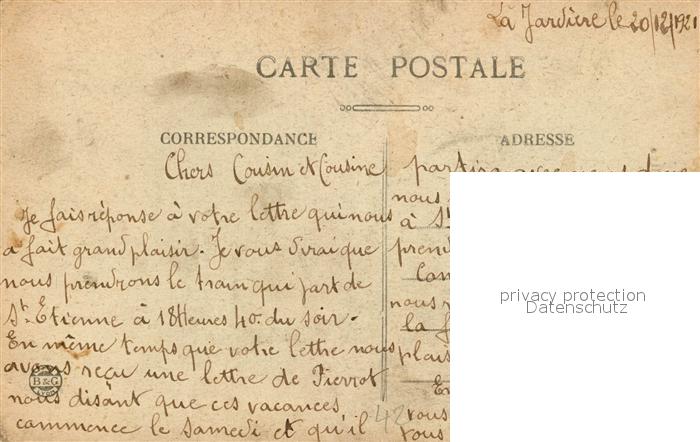 La Jardière le 20/12/1921
CARTE POSTALE
CORRESPONDANCE
ADRESSE
Chers Cousin et Cousine
Je fais réponse à votre lettre qui nous
a fait grand plaisir. Je vous dirai que
nous prendrons le train qui part de
St. Etienne à 18 Heures 40. du soir.
En même temps que votre lettre nous
avons reçu une lettre de Pierrot
nous disant que ces vacances
commence le Samedi et qu'il
partira avec nous donc
nous
à St
prend
nous
la f
plais
En
vous
vous
B&G
LYON
42
privacy protection
Datenschutz